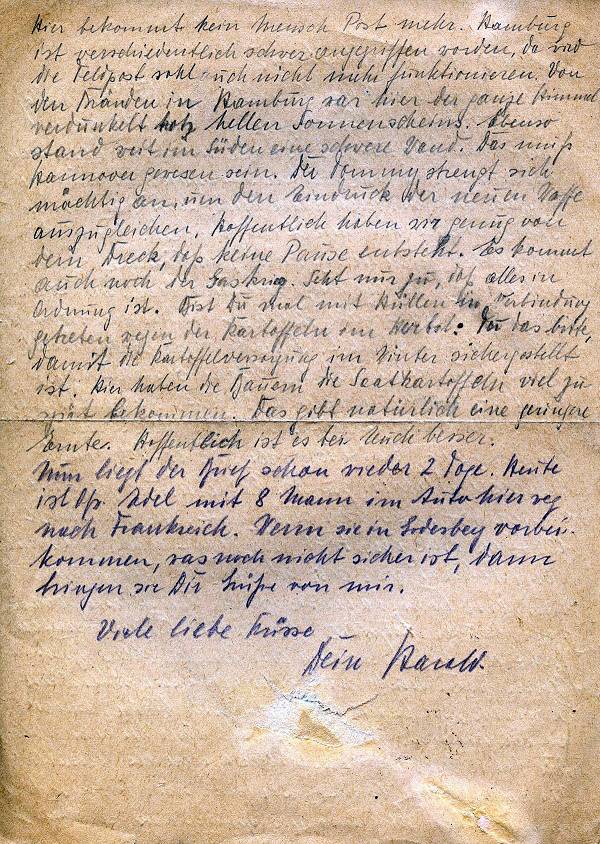 Hier bekommt kein Mensch Post mehr. Hamburg
ist verschiedentlich schwer angegriffen worden, da wird
die Feldpost wohl auch nicht mehr funktionieren. Von
den Bränden in Hamburg war hier der ganze Himmel
verdunkelt trotz hellen Sonnenscheins. Ebenso
stand weit im Süden eine schwere Wand. Das muß
Hannover gewesen sein. Der Tommy strengt sich
mächtig an, um den Eindruck der neuen Waffe
auszugleichen. Hoffentlich haben wir genug von
dem Dreck, daß keine Pause entsteht. Es kommt
auch noch der Gaskrieg. Seht nur zu, daß alles in
Ordnung ist. Bist Du mal mit Hüllen in Verbindung
getreten wegen der Kartoffeln im Herbst? Tu das bitte,
damit die Kartoffelversorgung im Winter sichergestellt
ist. Hier haben die Bauern die Saatkartoffeln viel zu
spät bekommen. Das gibt natürlich eine geringere
Ernte. Hoffentlich ist es bei Euch besser.
Nun liegt der Brief schon wieder 2 Tage. Heute
ist mit 8 Mann im Auto hier weg
nach Frankreich. Wenn sie in Godesberg vorbei-
kommen, was noch nicht sicher ist, dann
bringen sie Dir Grüße von mir.
Viele liebe Küsse
Dein Harald.